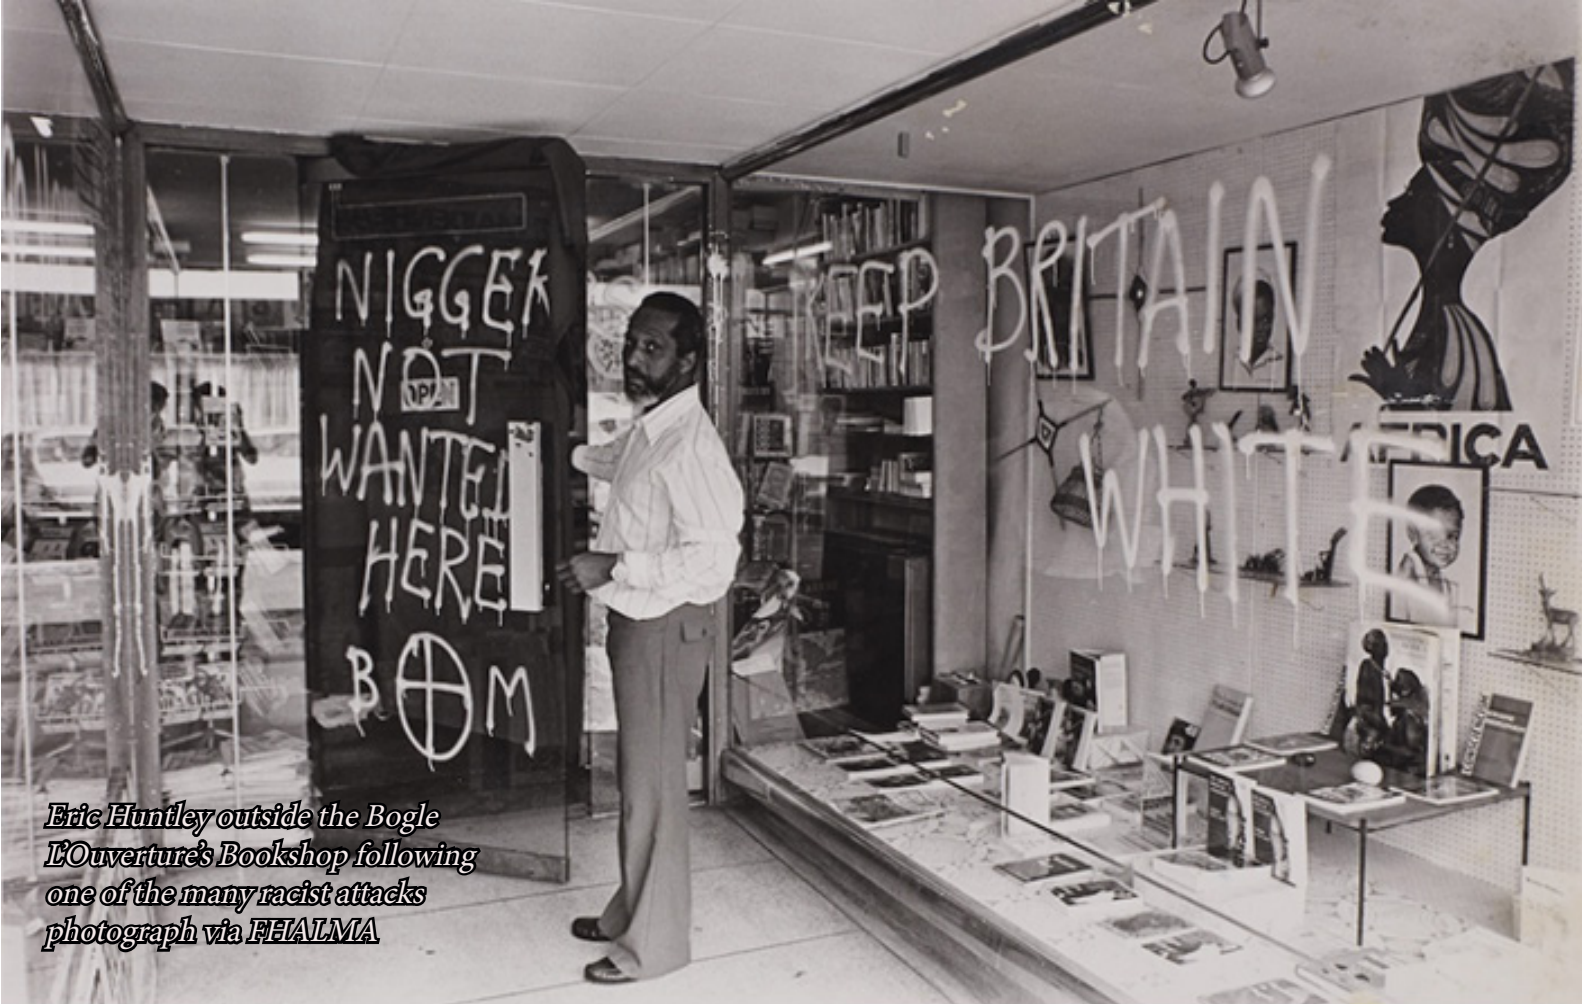 NIGGER
NOT
OPEN
WANTED
HERE
BOM
KEEP BRITAIN
WHITE
AFRICA
Eric Huntley outside the Bogle
L'Ouverture's Bookshop following
one of the many racist attacks
photograph via FHALMA